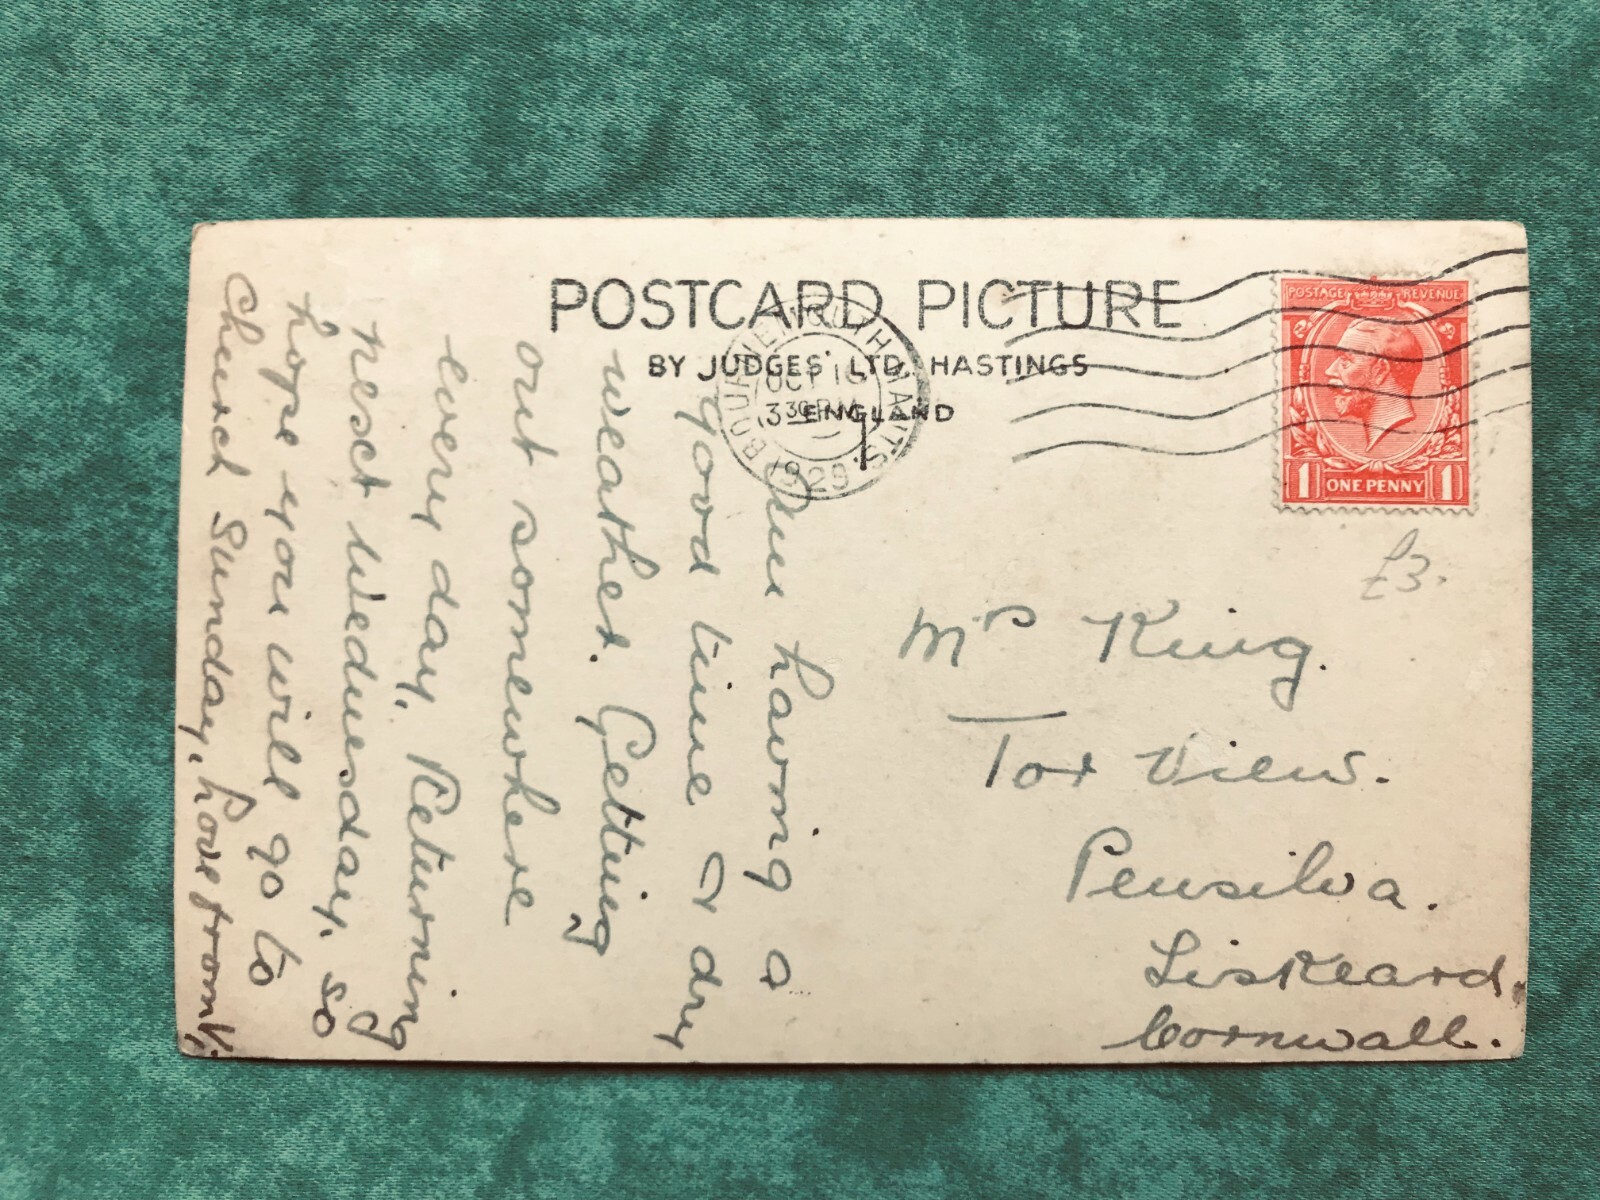 POSTCARD PICTURE
BY JUDGES' LTD, HASTINGS
ENGLAND
BOURNEMOUTH HANTS.
OCT
3 30 PM
1929
POSTAGE REVENUE
1 ONE PENNY 1
£3.
Mrs King.
Tor View.
Pensilva.
Liskeard.
Cornwall.
Am having a
good time & dry
weather. Getting
out somewhere
every day. Returning
next Wednesday, so
hope you will go to
Church Sunday, Love from